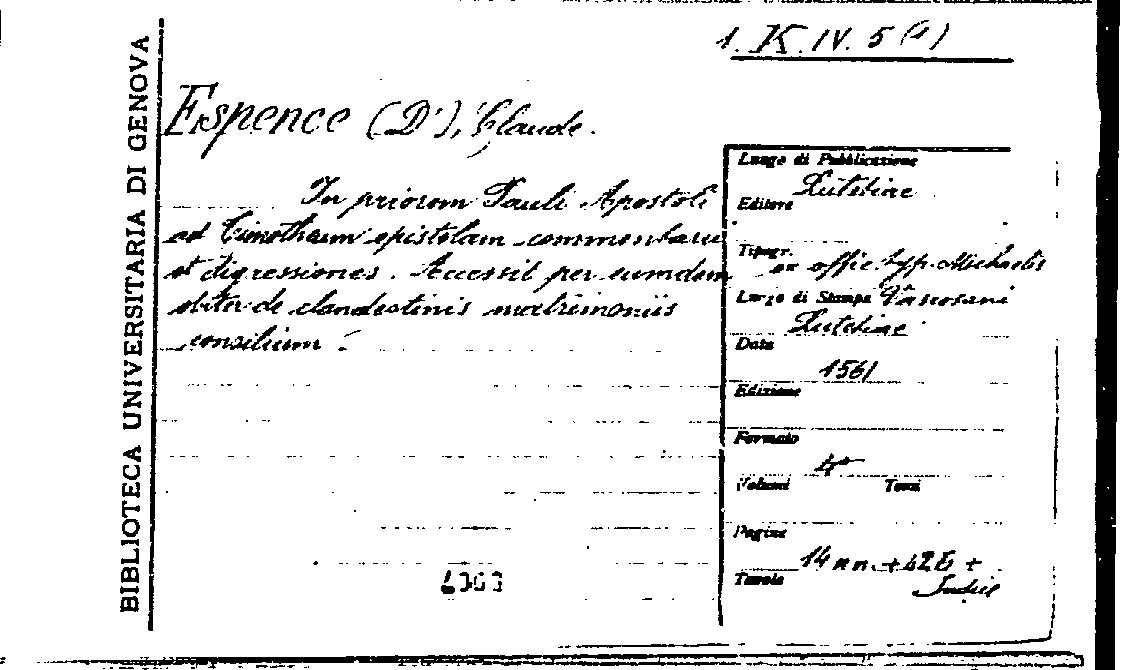 BIBLIOTECA UNIVERSITARIA DI GENOVA
1. K. IV. 5 (1)
Espence (D'), Claude.
In priorem Pauli Apostoli
ad Timotheum epistolam commentarii
et digressiones. Accessit per eumdem
obiter de clandestinis matrimoniis
consilium.
Luogo di Pubblicazione
Lutetiae
Editore
Tipogr.
ex offic. typ. Michaelis
Vascosani
Luogo di Stampa
Lutetiae
Data
1561
Edizione
Formato
4°
Volumi Tomi
Pagine
14 nn. + 426 +
Indice
Tavole